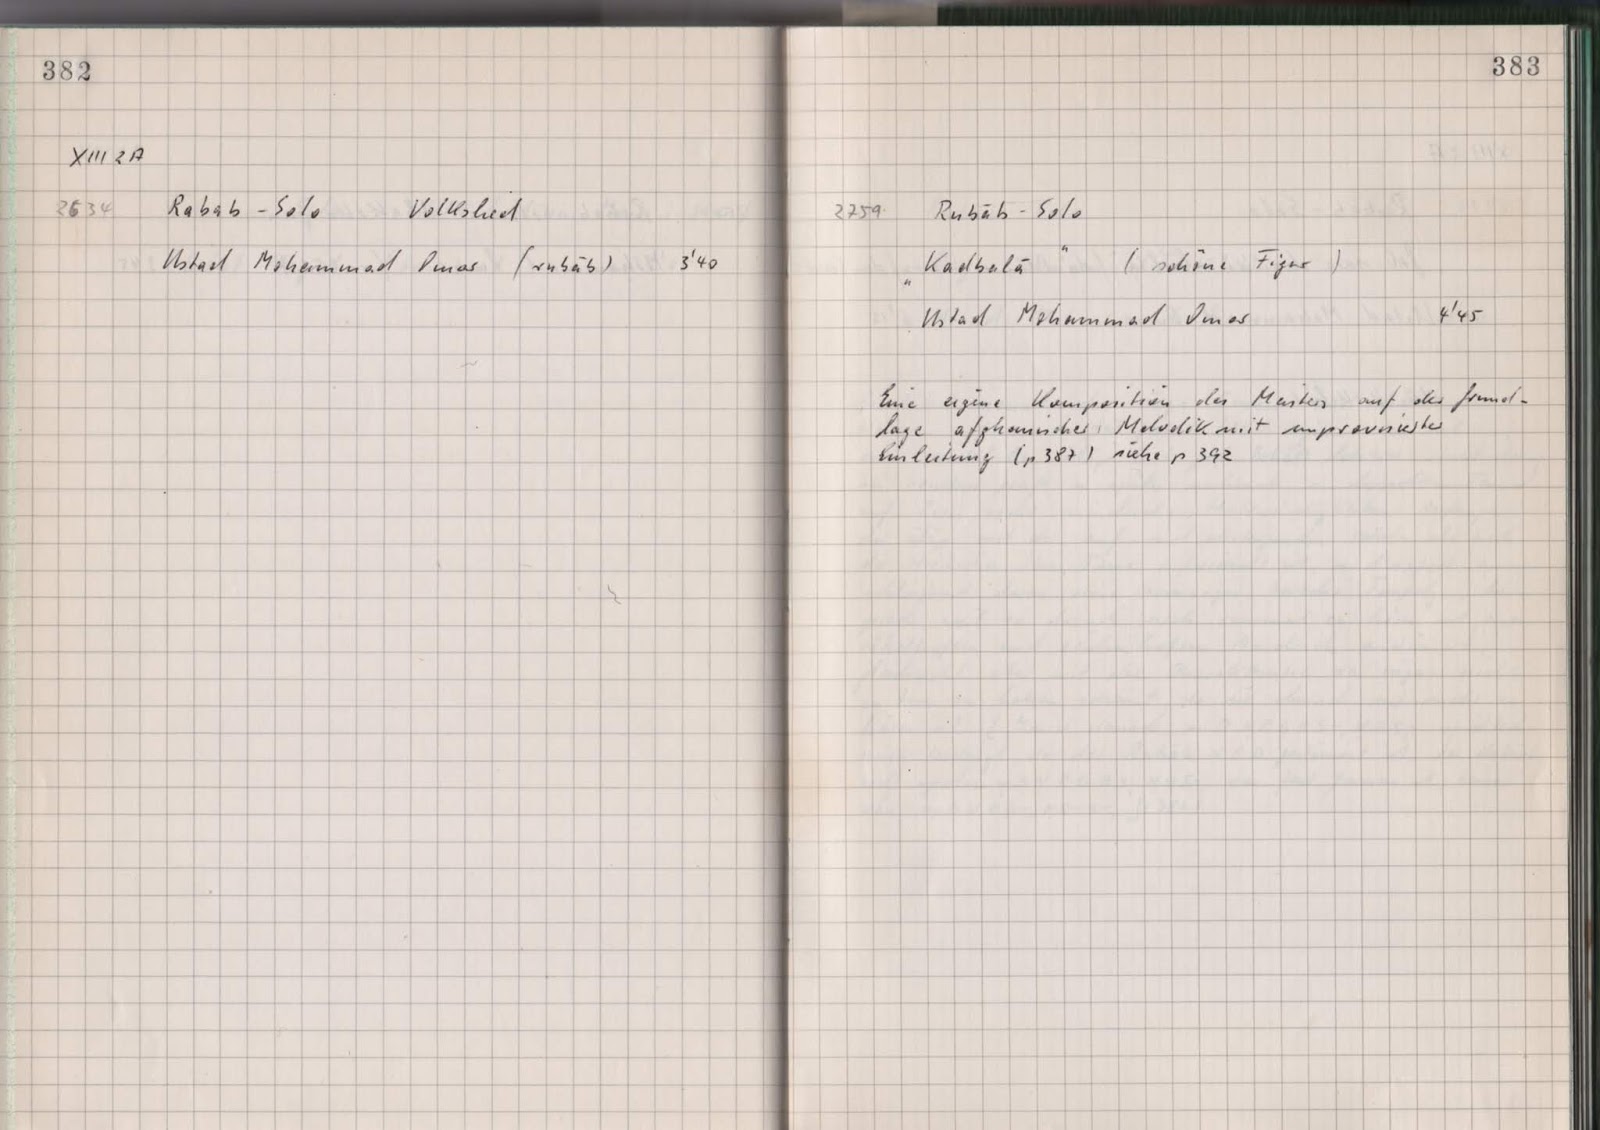 382
XIII 2A
2634 Rabab - Solo Volkslied
Ustad Mohammad Omar (rubāb) 3'40
383
2759 Rubāb - Solo
„Kadbalā" (schöne Figur)
Ustad Mohammad Omar 4'45
Eine eigene Komposition des Meisters auf der Grund-
lage afghanischer Melodik mit improvisierter
Einleitung (p 387) siehe p 392